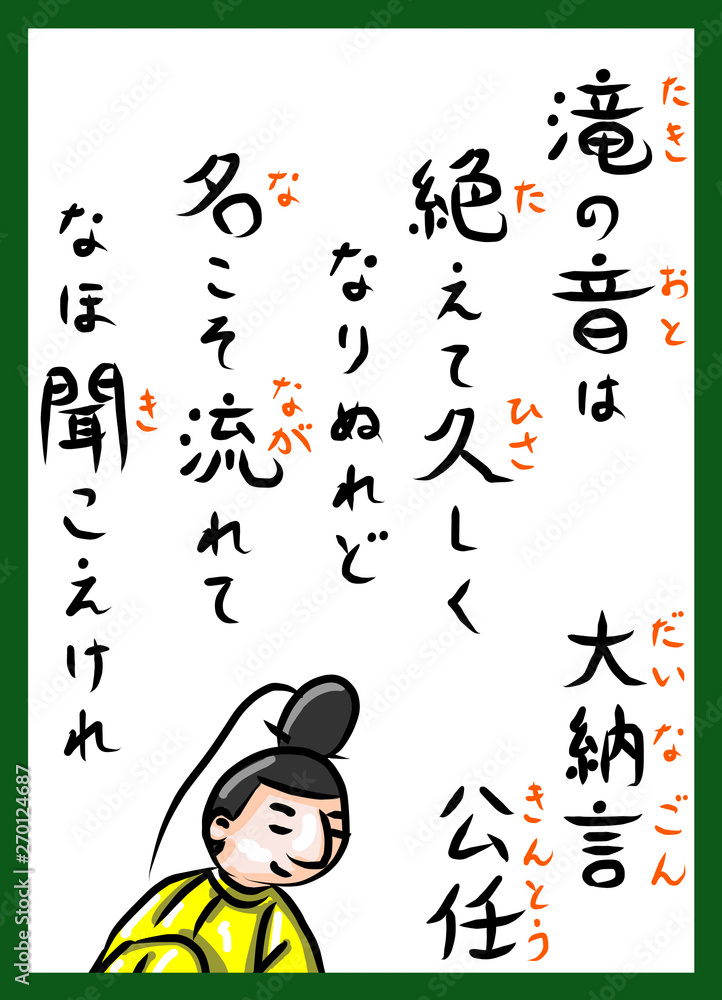 滝の音は
たき おと
絶えて久しく
た ひさ
なりぬれど
名こそ流れて
な なが
なほ聞こえけれ
き
大納言
だいなごん
公任
きんとう
Adobe Stock | #270124687